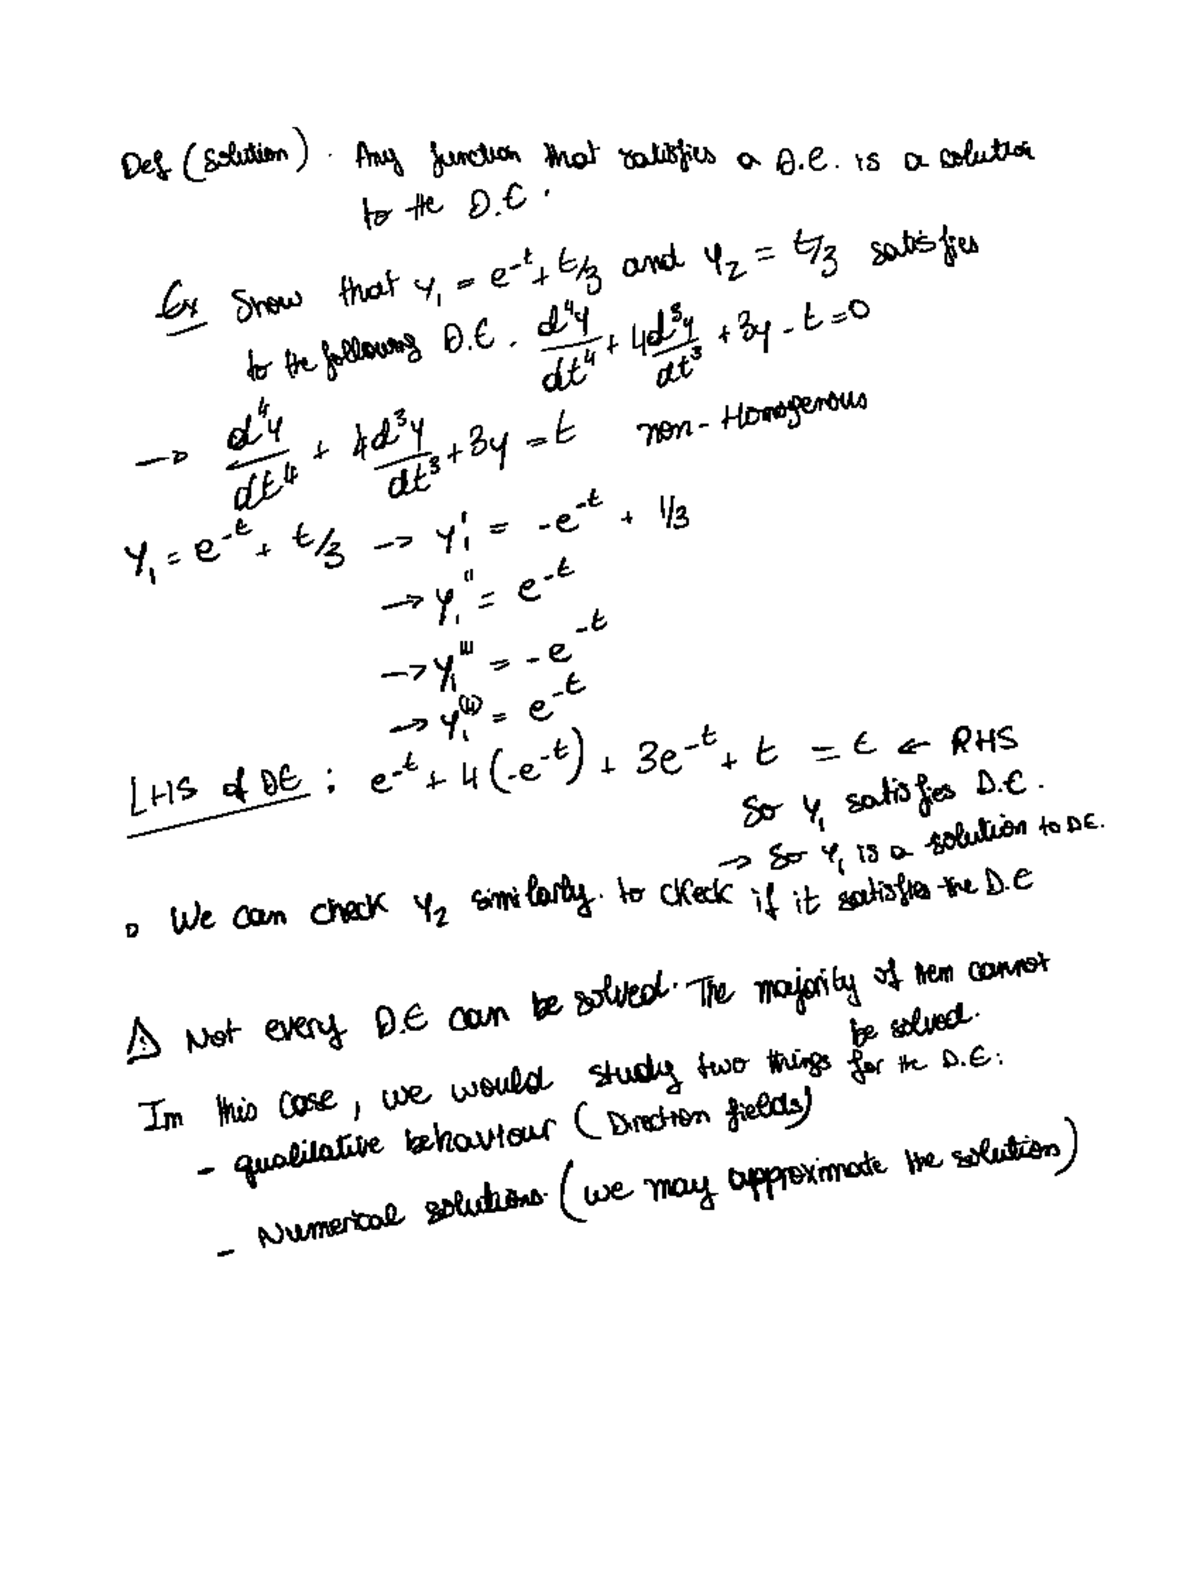 Def (Solution). Any function that satisfies a D.E. is a solution
to the D.E.
Ex Show that y₁ = e^-t + t/3 and y₂ = t/3 satisfies
to the following D.E. d⁴y/dt⁴ + 4d³y/dt³ + 3y - t = 0
→ d⁴y/dt⁴ + 4d³y/dt³ + 3y = t non-Homogenous
y₁ = e^-t + t/3 → y₁' = -e^-t + 1/3
→ y₁'' = e^-t
→ y₁''' = -e^-t
→ y₁^(4) = e^-t
LHS of DE : e^-t + 4(-e^-t) + 3e^-t + t = t ← RHS
So y₁ satisfies D.E.
→ So y₁ is a solution to DE.
▫ We can check y₂ similarly. to check if it satisfies the D.E
⚠ Not every D.E can be solved. The majority of them cannot
be solved.
Im this case, we would study two things for the D.E:
- qualilative behaviour (Direction fields)
- Numerical solutions. (we may approximate the solution)